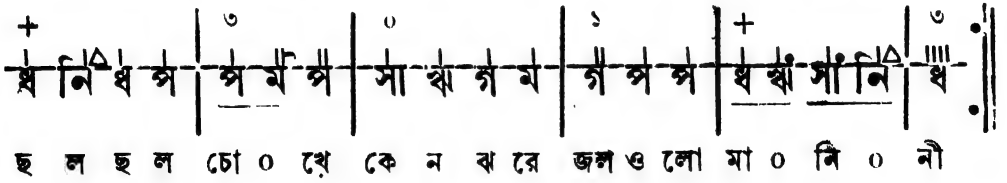 + ৩ ০ ১ + ৩
ধ নি ধ প প ম প সা ঋ গ ম গ প প ধ ঋ সা নি ধ
ছ ল ছ ল চো ০ খে কে ন ঝ রে জল ও লো মা ০ নি ০ নী